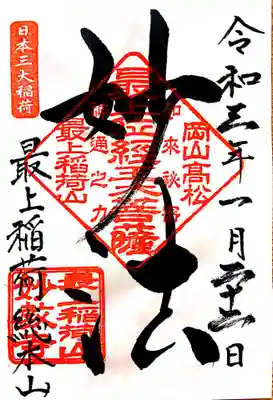 令和三年一月二十一日
岡山高松
如来秘密
最上位經王大菩薩
神通之力
最上稲荷山
妙法
日本三大稲荷
最上稲荷総本山
最上稲荷山
妙教寺